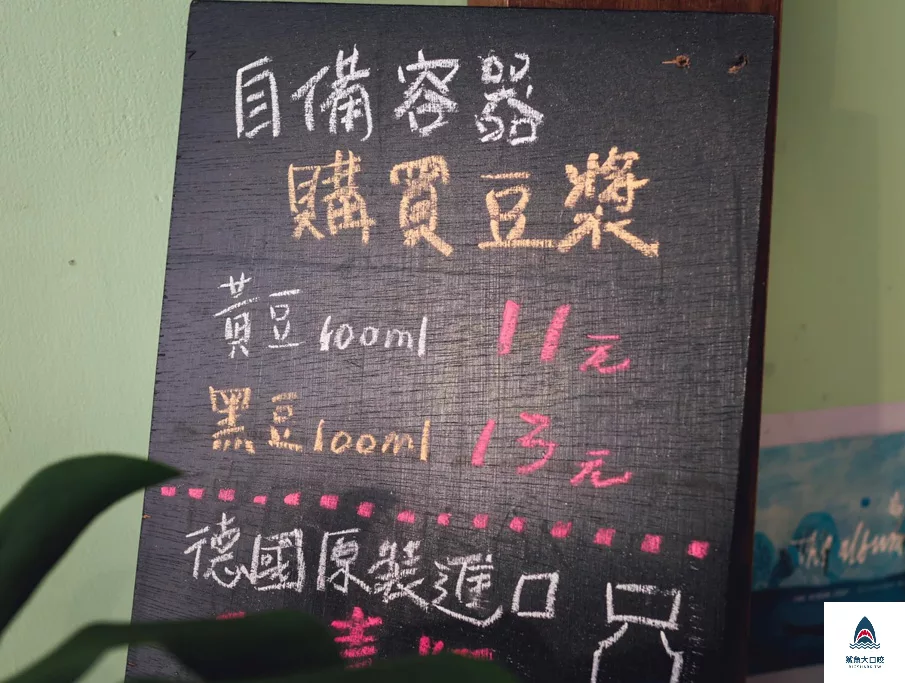 自備容器
購買豆漿
黃豆 100ml 11元
黑豆 100ml 13元
德國原裝進口
The album
鯊魚大口咬